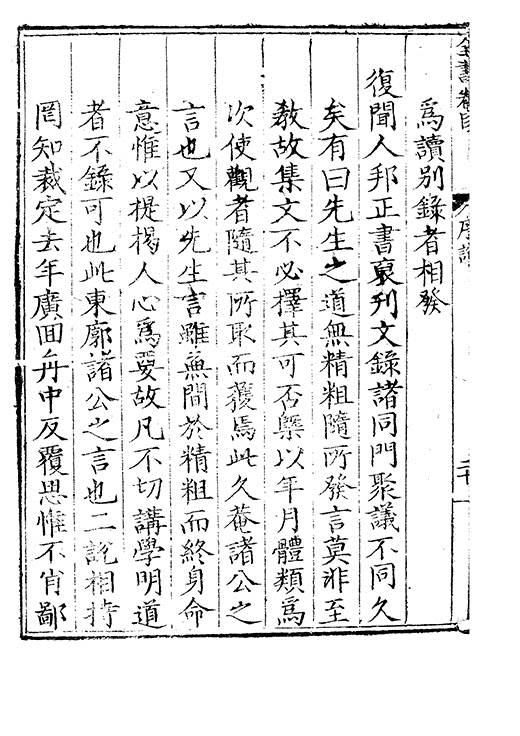 全書卷
序說
二十一
為讀別錄者相發
復聞人邦正書裒刊文錄諸同門聚議不同久
矣有曰先生之道無精粗隨所發言莫非至
教故集文不必擇其可否槩以年月體類為
次使觀者隨其所取而獲焉此久菴諸公之
言也又以先生言雖無間於精粗而終身命
意惟以提揭人心為要故凡不切講學明道
者不錄可也此東廓諸公之言也二說相持
罔知裁定去年廣囬舟中反覆思惟不肖鄙